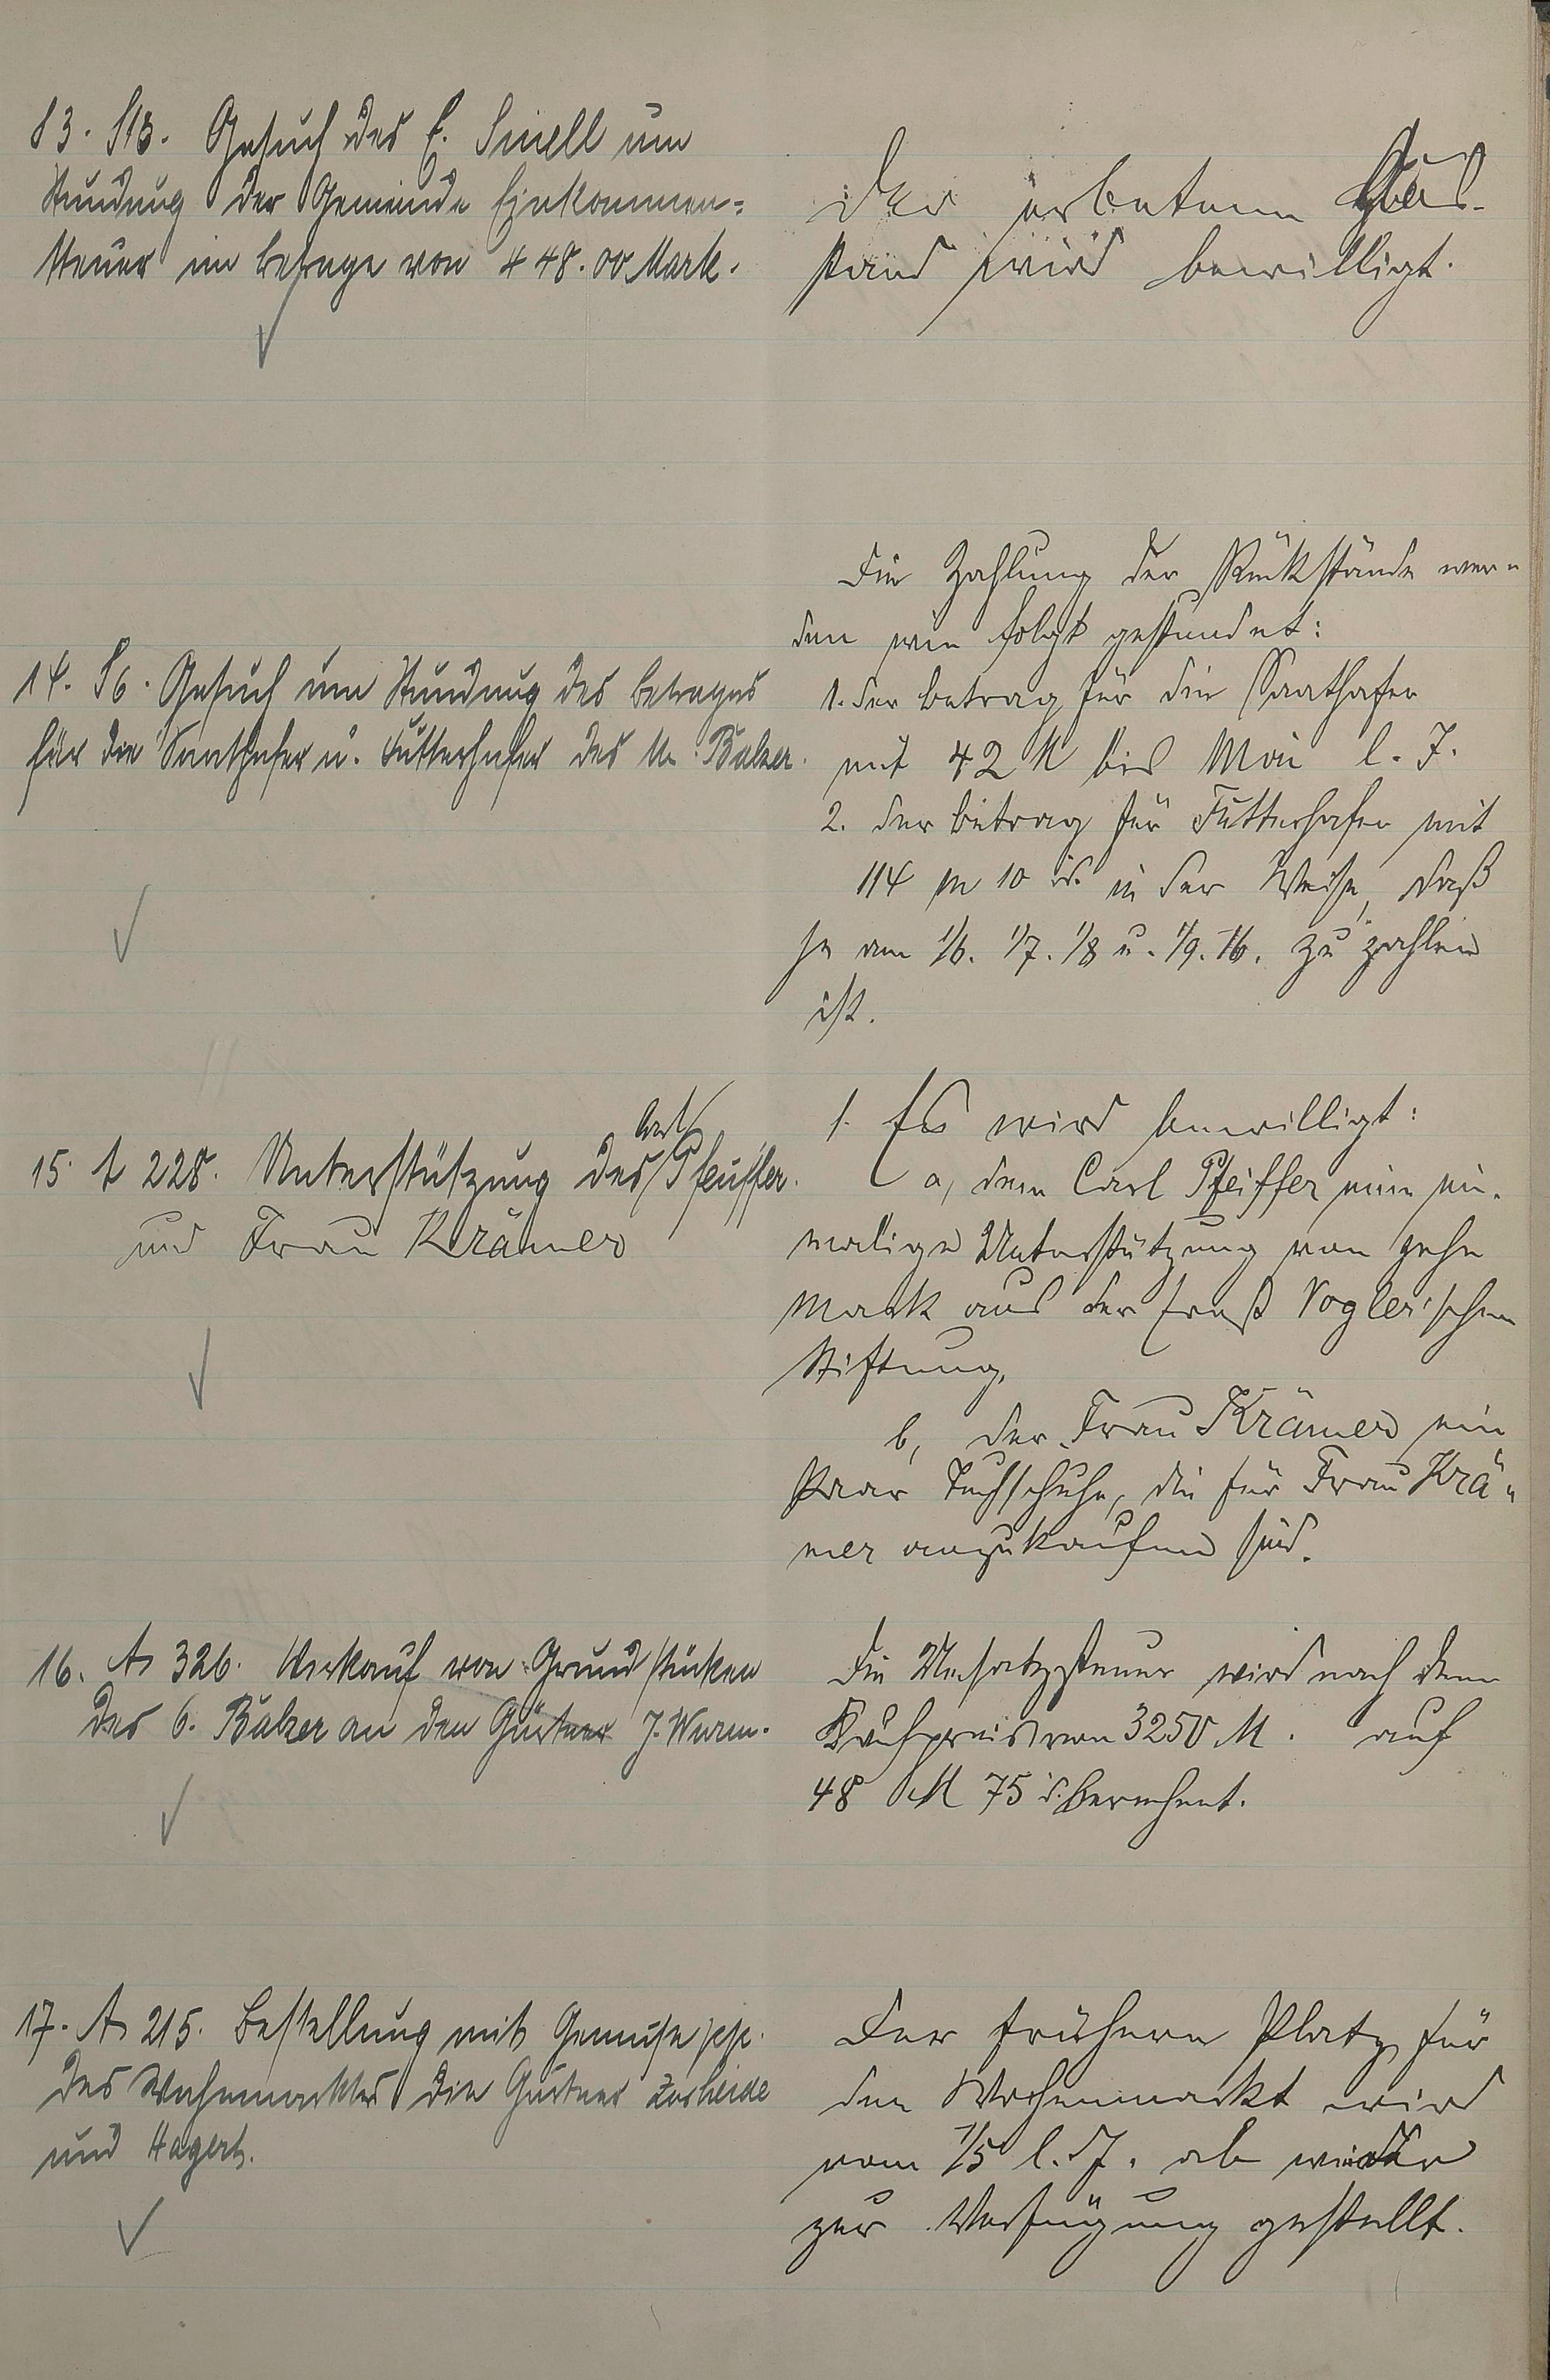 13. S13. Gesuch des E. Sinell um
Stundung der Gemeinde Einkommen=
steuer im betrage von 448.00 Mark.
Der erbetene Aus-
stand wird bewilligt.
14. S6. Gesuch um Stundung des betrages
für die Saathafer u. Futterhafer des W. Balzer.
Die Zahlung der Rückstände wer-
den wie folgt gestundet:
1. der betrag für die Saathafer
mit 42 M bis Mai l. J.
2. der betrag für Futterhafer mit
114 M 10 d. in der Weise, daß
je am 1/6. 1/7. 1/8 u. 1/9. 16. zu zahlen
ist.
15. A 228. Unterstützung des Carl Pfeuffer.
und Frau Krämer
1. Es wird bewilligt:
a, dem Carl Pfeiffer eine ein-
malige Unterstützung von zehn
Mark aus der Ernst Vogler'schen
Stiftung.
b, der Frau Krämer ein
Paar Tuchschuhe, die für Frau Krä-
mer anzukaufen sind.
16. A 326. Verkauf von Grundstücken
des C. Balzer an den Gärtner J. Wurm.
Die Umsatzsteuer wird nach dem
Kaufpreis von 3250 M. auf
48 M 75 d. berechnet.
17. A 215. Bestellung mit Gemüse pp.
des Wochenmarktes die Gärtner Zorheide
und Hagert.
Der frühere Platz für
den Wochenmarkt wird
vom 1/5 l. J. ab wieder
zur Verfügung gestellt.